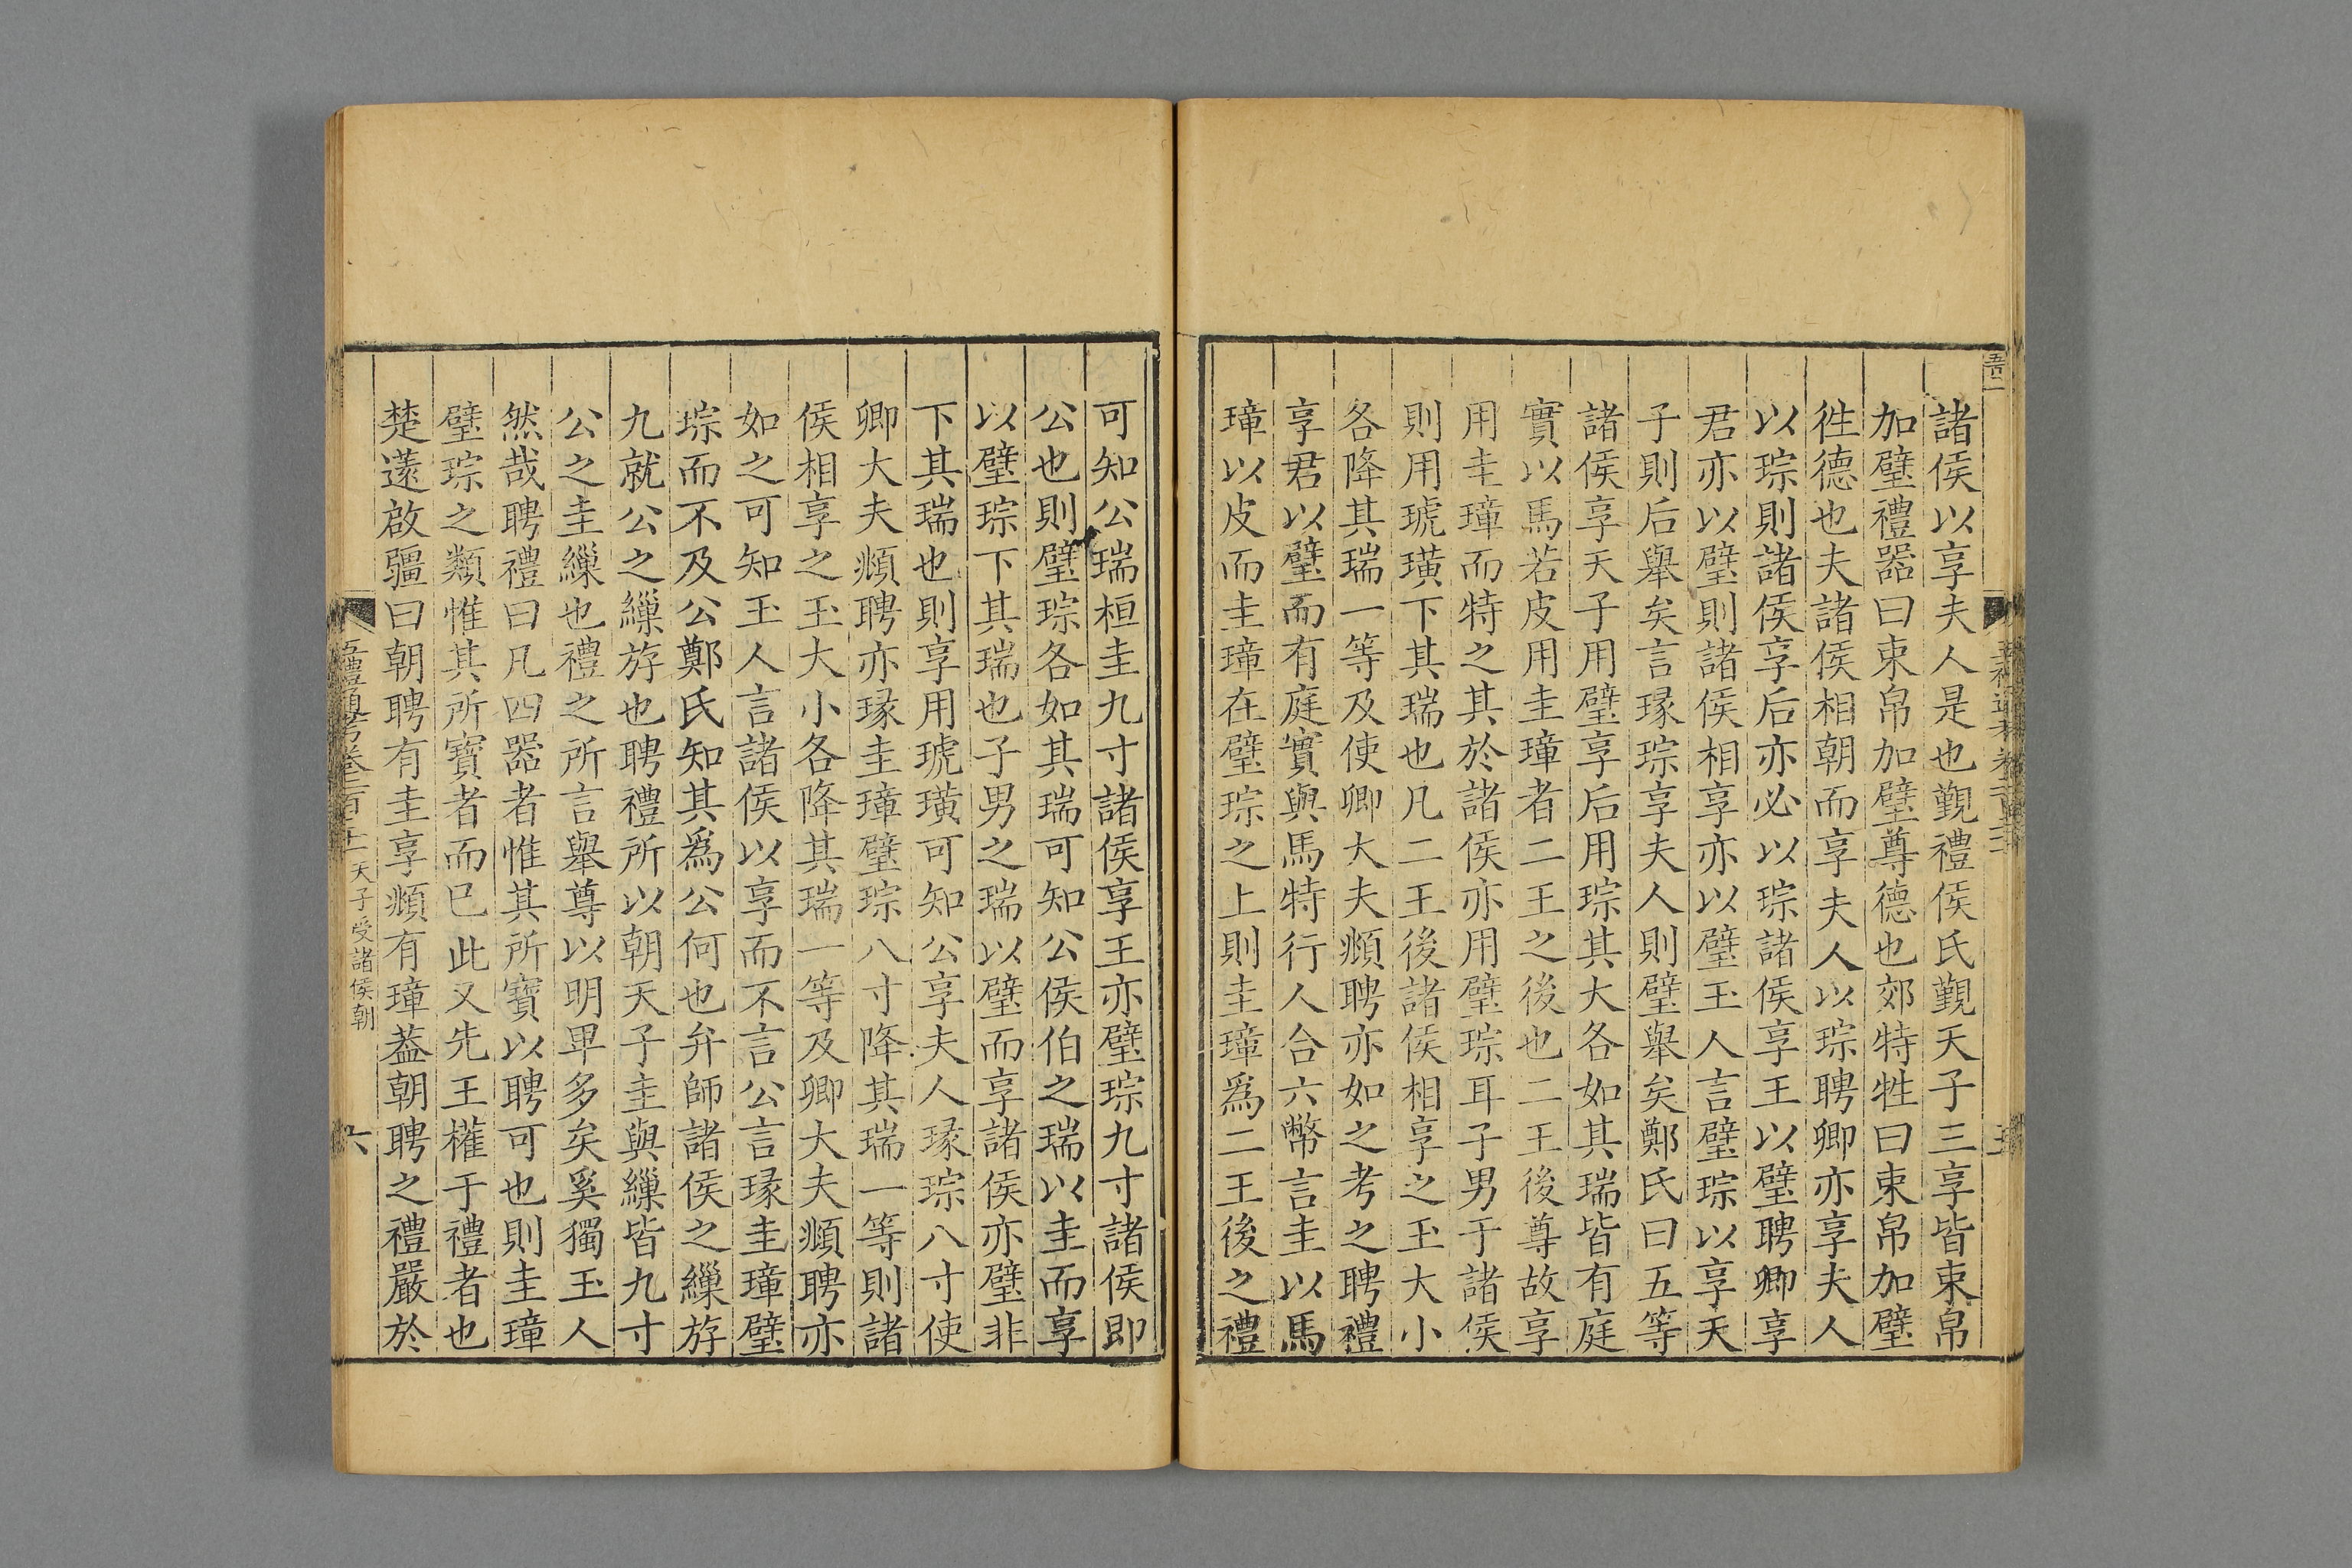 諸侯以享夫人是也覲禮侯氏覲天子三享皆束帛
加璧禮器曰束帛加璧尊德也郊特牲曰束帛加璧
徃德也夫諸侯相朝而享夫人以琮聘卿亦享夫人
以琮則諸侯享后亦必以琮諸侯享王以璧聘卿享
君亦以璧則諸侯相享亦以璧玉人言璧琮以享天
子則后舉矣言瑑琮享夫人則璧舉矣鄭氏曰五等
諸侯享天子用璧享后用琮其大各如其瑞皆有庭
實以馬若皮用圭璋者二王之後也二王後尊故享
用圭璋而特之其於諸侯亦用璧琮耳子男于諸侯
則用琥璜下其瑞也凡二王後諸侯相享之玉大小
各降其瑞一等及使卿大夫覜聘亦如之考之聘禮
享君以璧而有庭實與馬特行人合六幣言圭以馬
璋以皮而圭璋在璧琮之上則圭璋爲二王後之禮
可知公瑞桓圭九寸諸侯享王亦璧琮九寸諸侯即
公也則璧琮各如其瑞可知公侯伯之瑞以圭而享
以璧琮下其瑞也子男之瑞以璧而享諸侯亦璧非
下其瑞也則享用琥璜可知公享夫人瑑琮八寸使
卿大夫覜聘亦瑑圭璋璧琮八寸降其瑞一等則諸
侯相享之玉大小各降其瑞一等及卿大夫覜聘亦
如之可知玉人言諸侯以享而不言公言瑑圭璋璧
琮而不及公鄭氏知其爲公何也弁師諸侯之繅斿
九就公之繅斿也聘禮所以朝天子圭與繅皆九寸
公之圭繅也禮之所言舉尊以明卑多矣奚獨玉人
然哉聘禮曰凡四器者惟其所寶以聘可也則圭璋
璧琮之類惟其所寶者而巳此又先王權于禮者也
楚薳啟疆曰朝聘有圭享覜有璋葢朝聘之禮嚴於
五禮通考卷二百二十 天子受諸侯朝 六